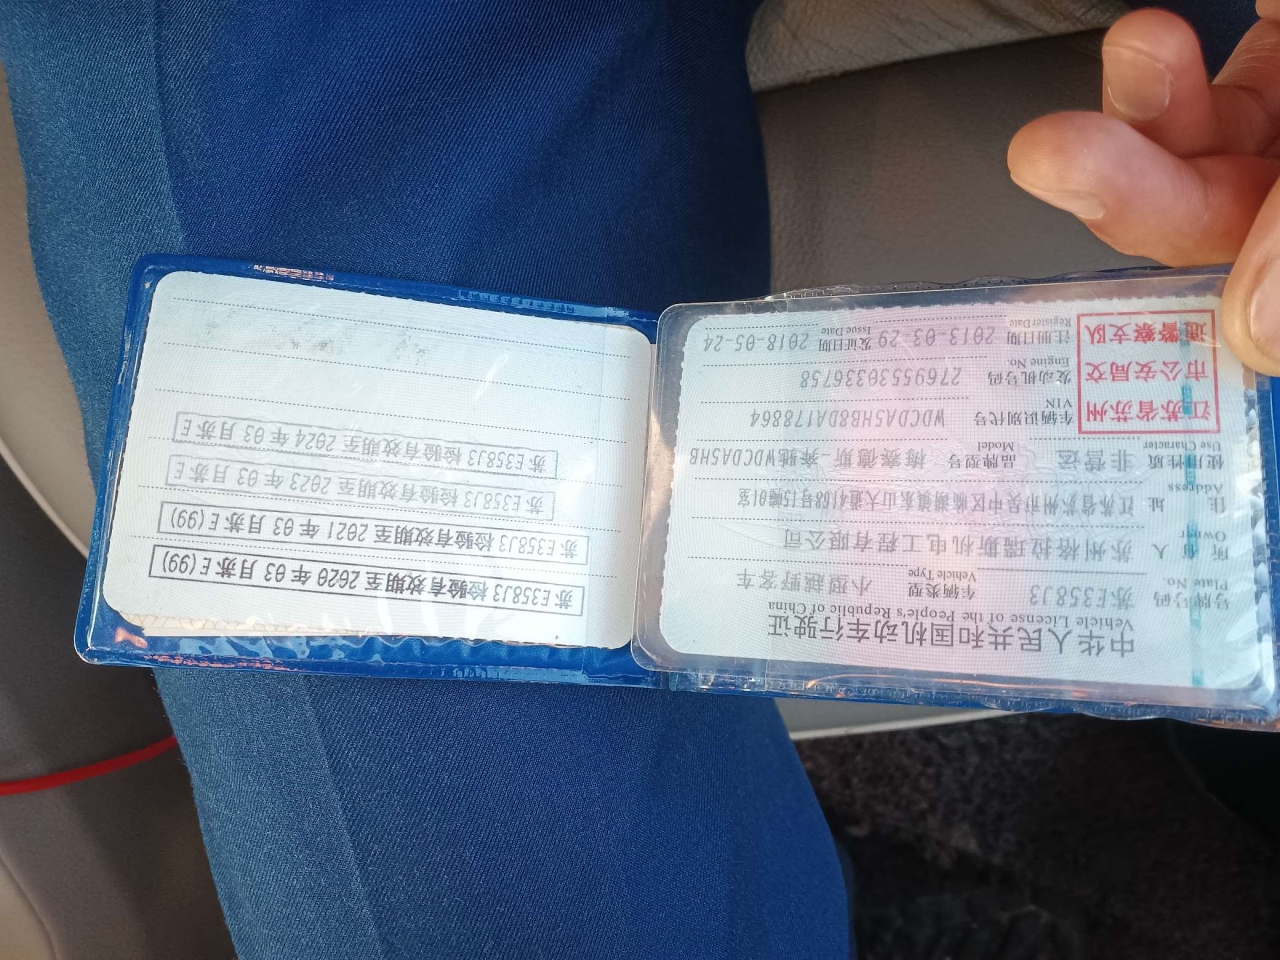 中华人民共和国机动车行驶证
Vehicle License of the People's Republic of China
号牌号码 苏E358J3 车辆类型 小型越野客车
Plate No. Vehicle Type
所有人 苏州格拉瑞斯机电工程有限公司
Owner
住址 江苏省苏州市吴中区临湖镇东山大道4168号15幢01室
Address
使用性质 非营运 品牌型号 梅赛德斯-奔驰WDCDA5HB
Use Character Model
江苏省苏州
市公安局交
通警察支队
车辆识别代号 WDCDA5HB8DA178864
VIN
发动机号码 27695530336758
Engine No.
注册日期 2013-03-29 发证日期 2018-05-24
Register Date Issue Date
苏E358J3 检验有效期至 2020 年 03 月苏E(99)
苏E358J3 检验有效期至 2021 年 03 月苏E(99)
苏E358J3 检验有效期至 2023 年 03 月苏E
苏E358J3 检验有效期至 2024 年 03 月苏E